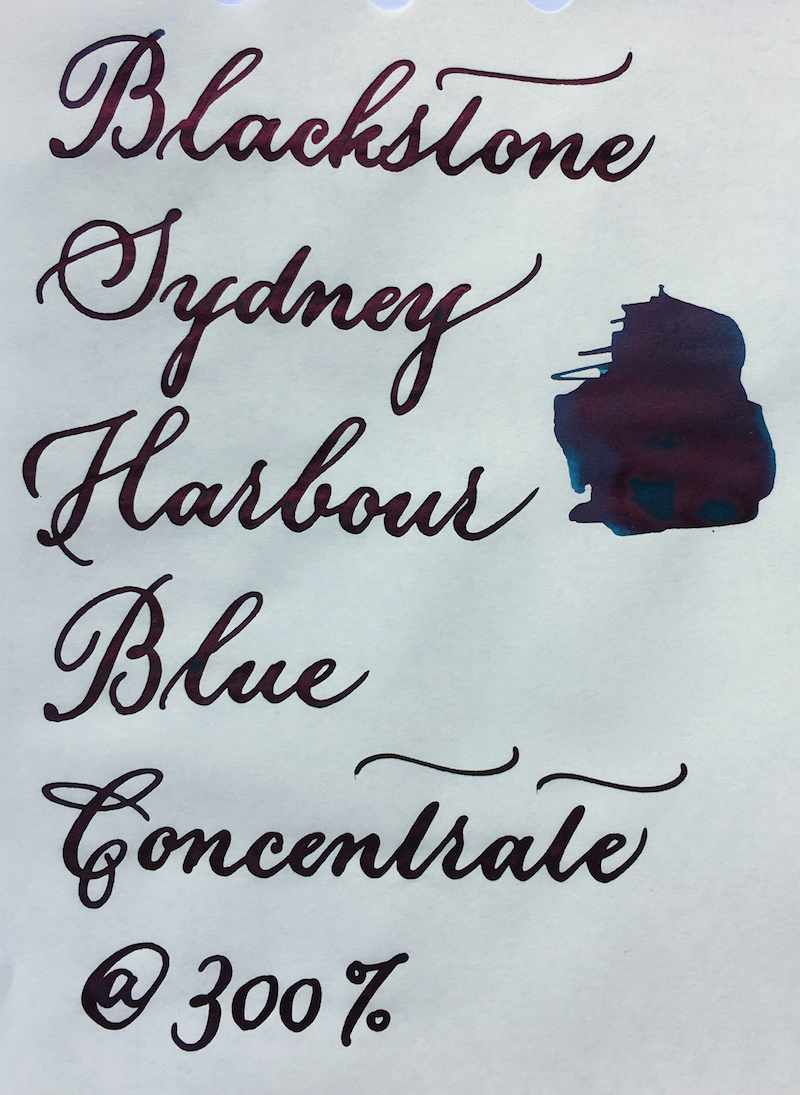 Blackstone
Sydney
Harbour
Blue
Concentrate
@ 300%